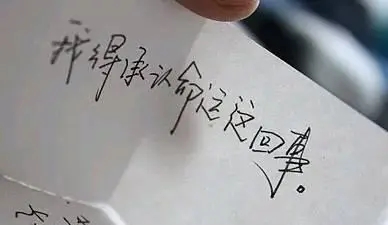 我得承认命运这回事。